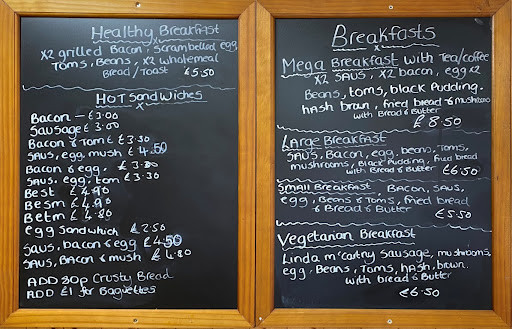 Healthy Breakfast
x2 grilled Bacon, Scrambelled egg
Toms, Beans, x2 wholemeal
Bread/Toast £5.50
Hot Sandwiches
Bacon - £3.00
Sausage £3.00
Bacon & Tom £3.30
Saus, egg, mush £4.50
Bacon & egg. £3.30
Saus, egg, tom £3.30
Best £4.90
Besm £4.90
Betm £4.80
egg Sandwhich £2.50
Saus, bacon & egg £4.50
Saus, Bacon & mush £4.80
ADD 30p Crusty Bread
ADD £1 for Baguettes
Breakfasts
Mega Breakfast with Tea/coffee
x2 Saus, x2 bacon, egg x2
Beans, toms, black Pudding.
hash brown, fried bread & mushrooms
with Bread & Butter
£8.50
Large Breakfast
Saus, Bacon, egg, beans, Toms,
mushrooms, Black Pudding, fried bread
with Bread & Butter £6.50
Small Breakfast. Bacon, Saus,
egg, Beans & Toms, fried bread
& Bread & Butter
£5.50
Vegetarian Breakfast
Linda m'cartny Sausage, mushrooms,
egg, Beans, Toms, hash, brown.
with bread & Butter
£6.50